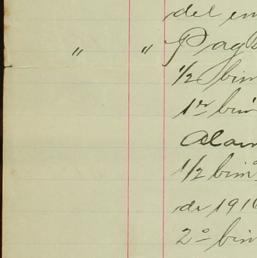 del em
" " Pag
1/2 bim
1er bim
Alam
1/2 bimo
de 1916
2o bim